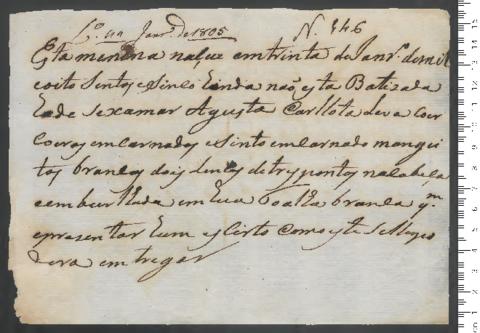 Lº 44 Janrº de 1805 N. 446
Esta menina naseu em trinta de Janrº de mil
e oito sentos e sinco e inda não esta Batizada
e ade se xamar Agusta Carllota leva
em carnados e sinto em carnado mangui
tos brancos dois lensos de tres pontos na cabesa
e emburllada em hua toalha branca qm
apresentar hum escrito como este se lhe
devera entregar